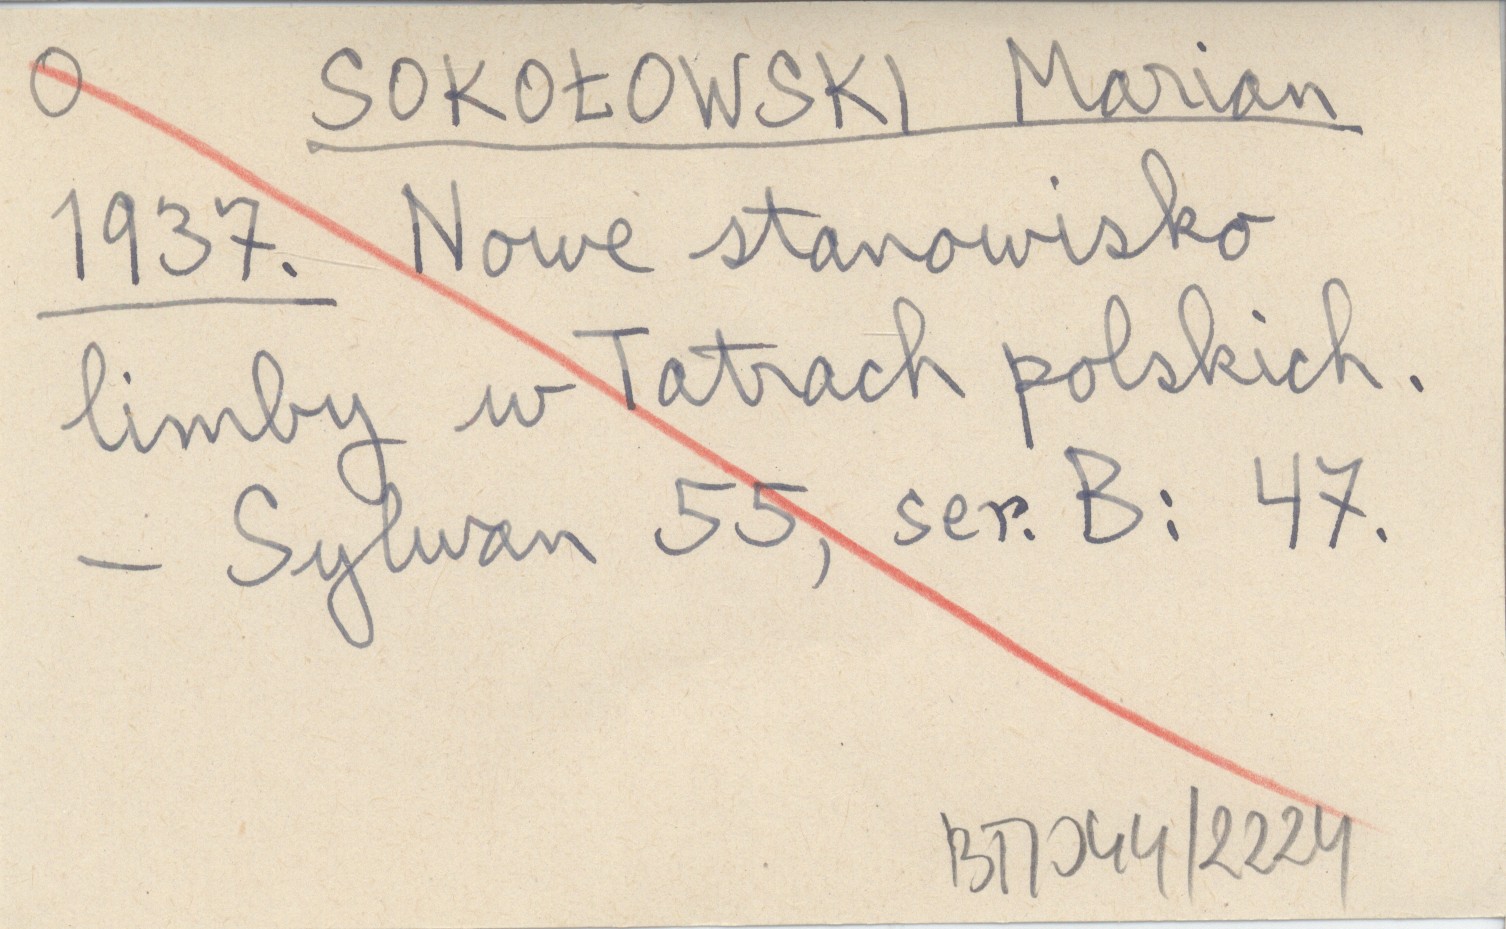 O SOKOŁOWSKI Marian
1937. Nowe stanowisko
limby w Tatrach polskich.
— Sylwan 55, ser. B: 47.